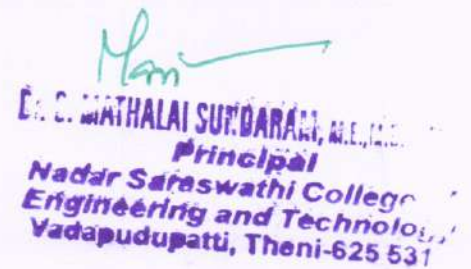 Dr. C. MATHALAI SUNDARAM, M.E.,
Principal
Nadar Saraswathi College
Engineering and Technology
Vadapudupatti, Theni-625 531